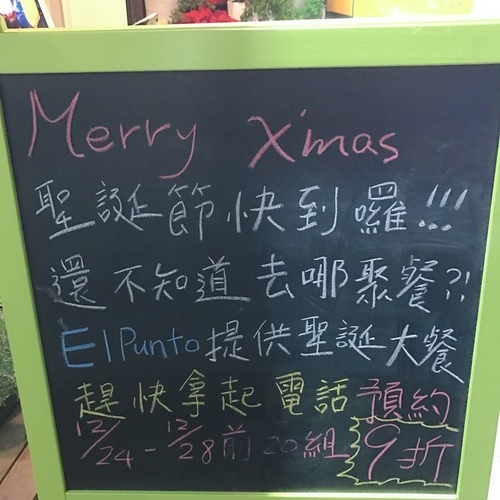 Merry X'mas
聖誕節快到囉!!!
還不知道去哪聚餐?!
El Punto提供聖誕大餐
趕快拿起電話預約
12/24-12/28前20組 9折